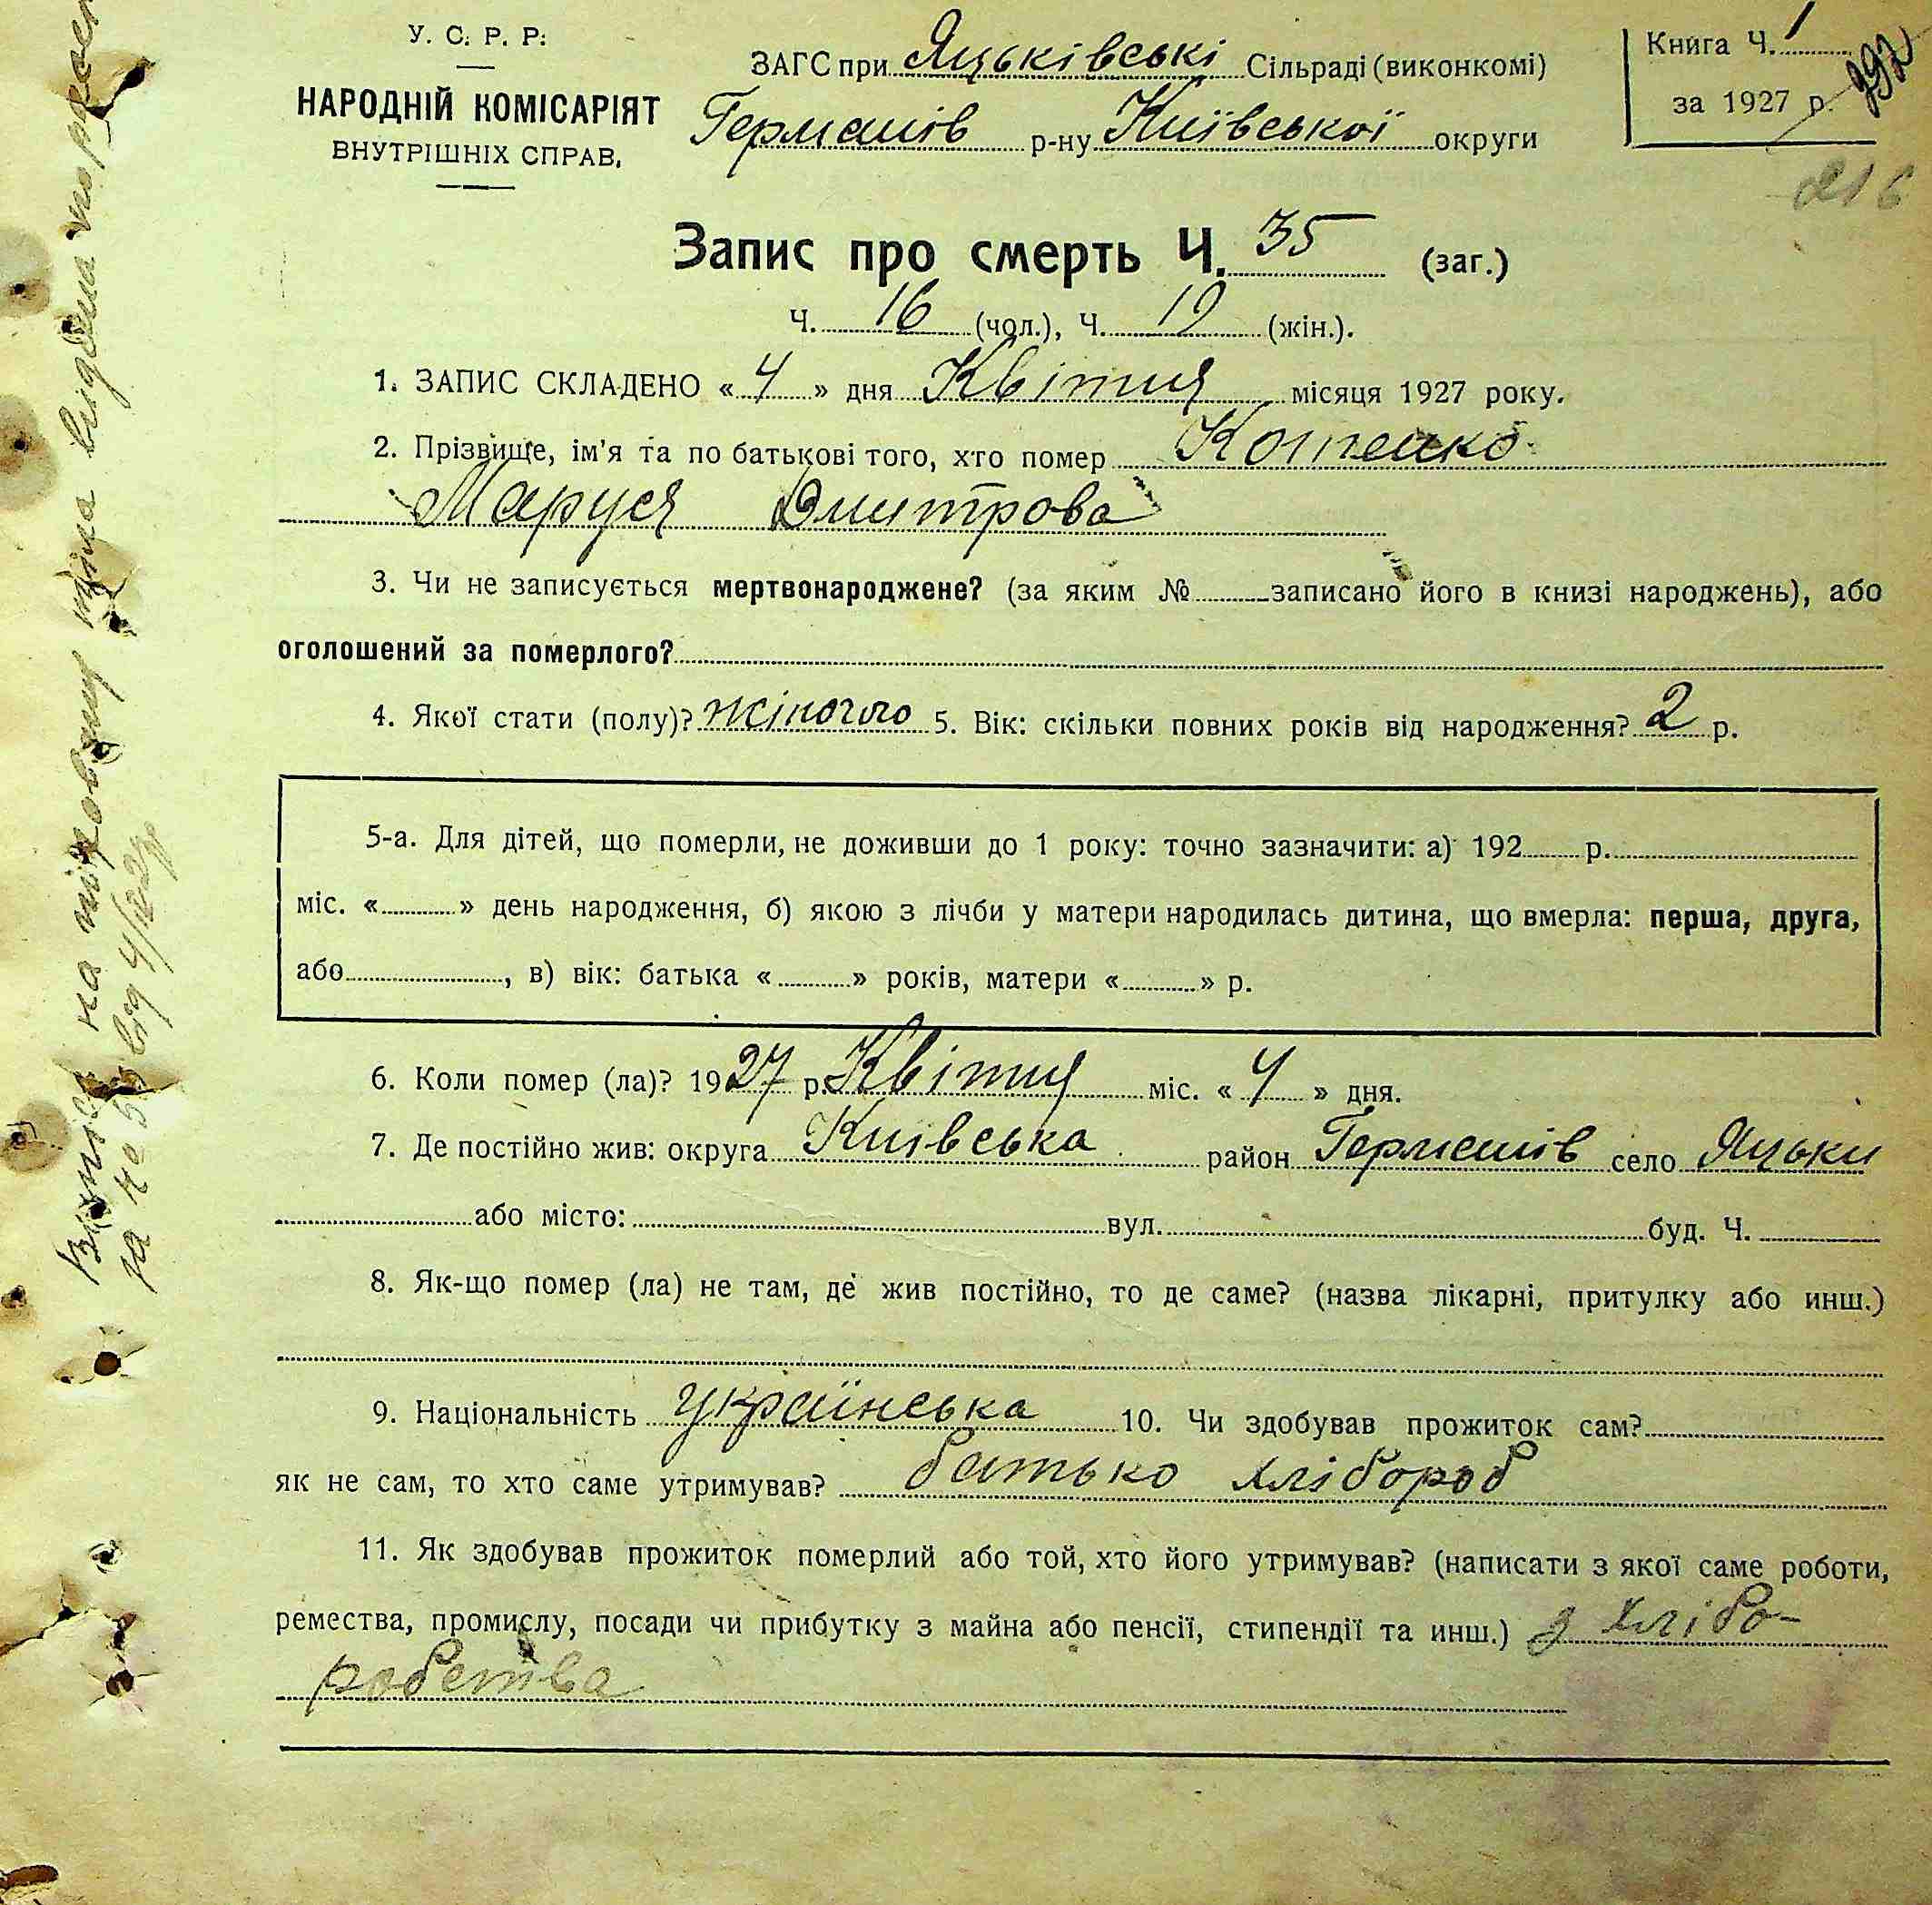 У. С. Р. Р.
НАРОДНІЙ КОМІСАРІЯТ
ВНУТРІШНІХ СПРАВ.
ЗАГС при Яцьківські Сільраді (виконкомі)
Германів р-ну Київської округи
Книга Ч. 1
за 1927 р.
292
216
Запис про смерть Ч. 35 (заг.)
Ч. 16 (чол.), Ч. 19 (жін.).
1. ЗАПИС СКЛАДЕНО « 4 » дня Квітня місяця 1927 року.
2. Прізвище, ім'я та по батькові того, хто помер
Маруся Дмитрова
3. Чи не записується мертвонароджене? (за яким № записано його в книзі народжень), або
оголошений за померлого?
4. Якої стати (полу)? жіночого 5. Вік: скільки повних років від народження? 2 р.
5-а. Для дітей, що померли, не доживши до 1 року: точно зазначити: а) 192 р.
міс. « » день народження, б) якою з лічби у матери народилась дитина, що вмерла: перша, друга,
або , в) вік: батька « » років, матери « » р.
6. Коли помер (ла)? 1927 р. Квітня міс. « 4 » дня.
7. Де постійно жив: округа Київська район Германів село Яцьки
або місто: вул. буд. Ч.
8. Як-що помер (ла) не там, де жив постійно, то де саме? (назва лікарні, притулку або инш.)
9. Національність українська 10. Чи здобував прожиток сам?
як не сам, то хто саме утримував? батько хлібороб
11. Як здобував прожиток померлий або той, хто його утримував? (написати з якої саме роботи,
ремества, промислу, посади чи прибутку з майна або пенсії, стипендії та инш.) з хлібо-
робства